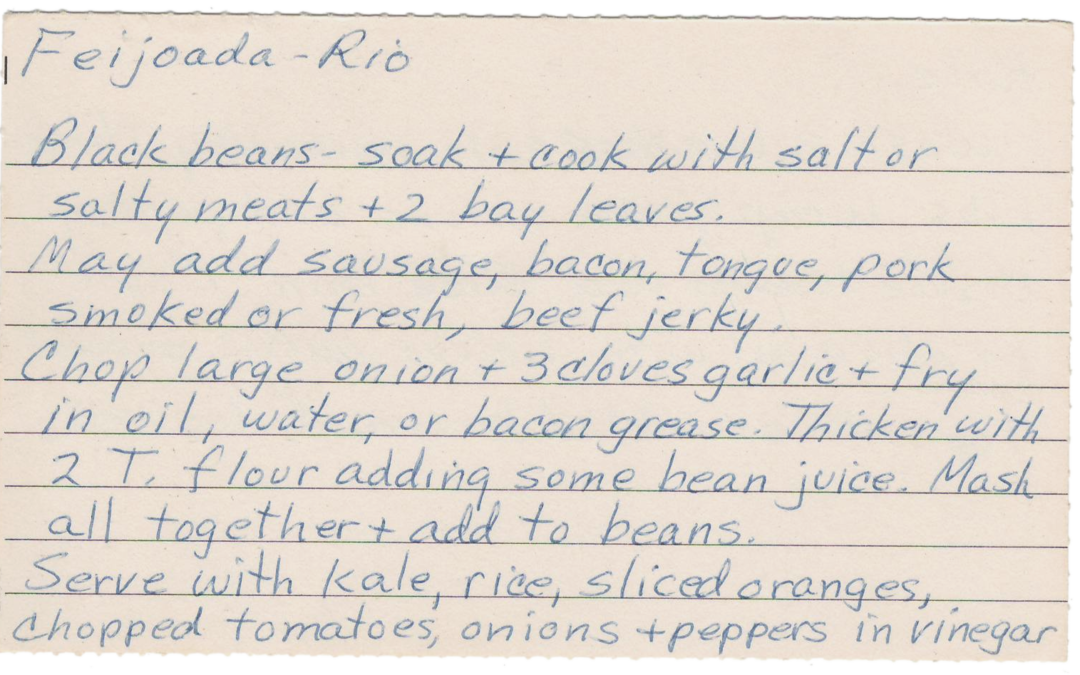 Feijoada - Rio
Black beans - soak + cook with salt or
salty meats + 2 bay leaves.
May add sausage, bacon, tongue, pork
smoked or fresh, beef jerky.
Chop large onion + 3 cloves garlic + fry
in oil, water, or bacon grease. Thicken with
2 T. flour adding some bean juice. Mash
all together + add to beans.
Serve with kale, rice, sliced oranges,
chopped tomatoes, onions + peppers in vinegar